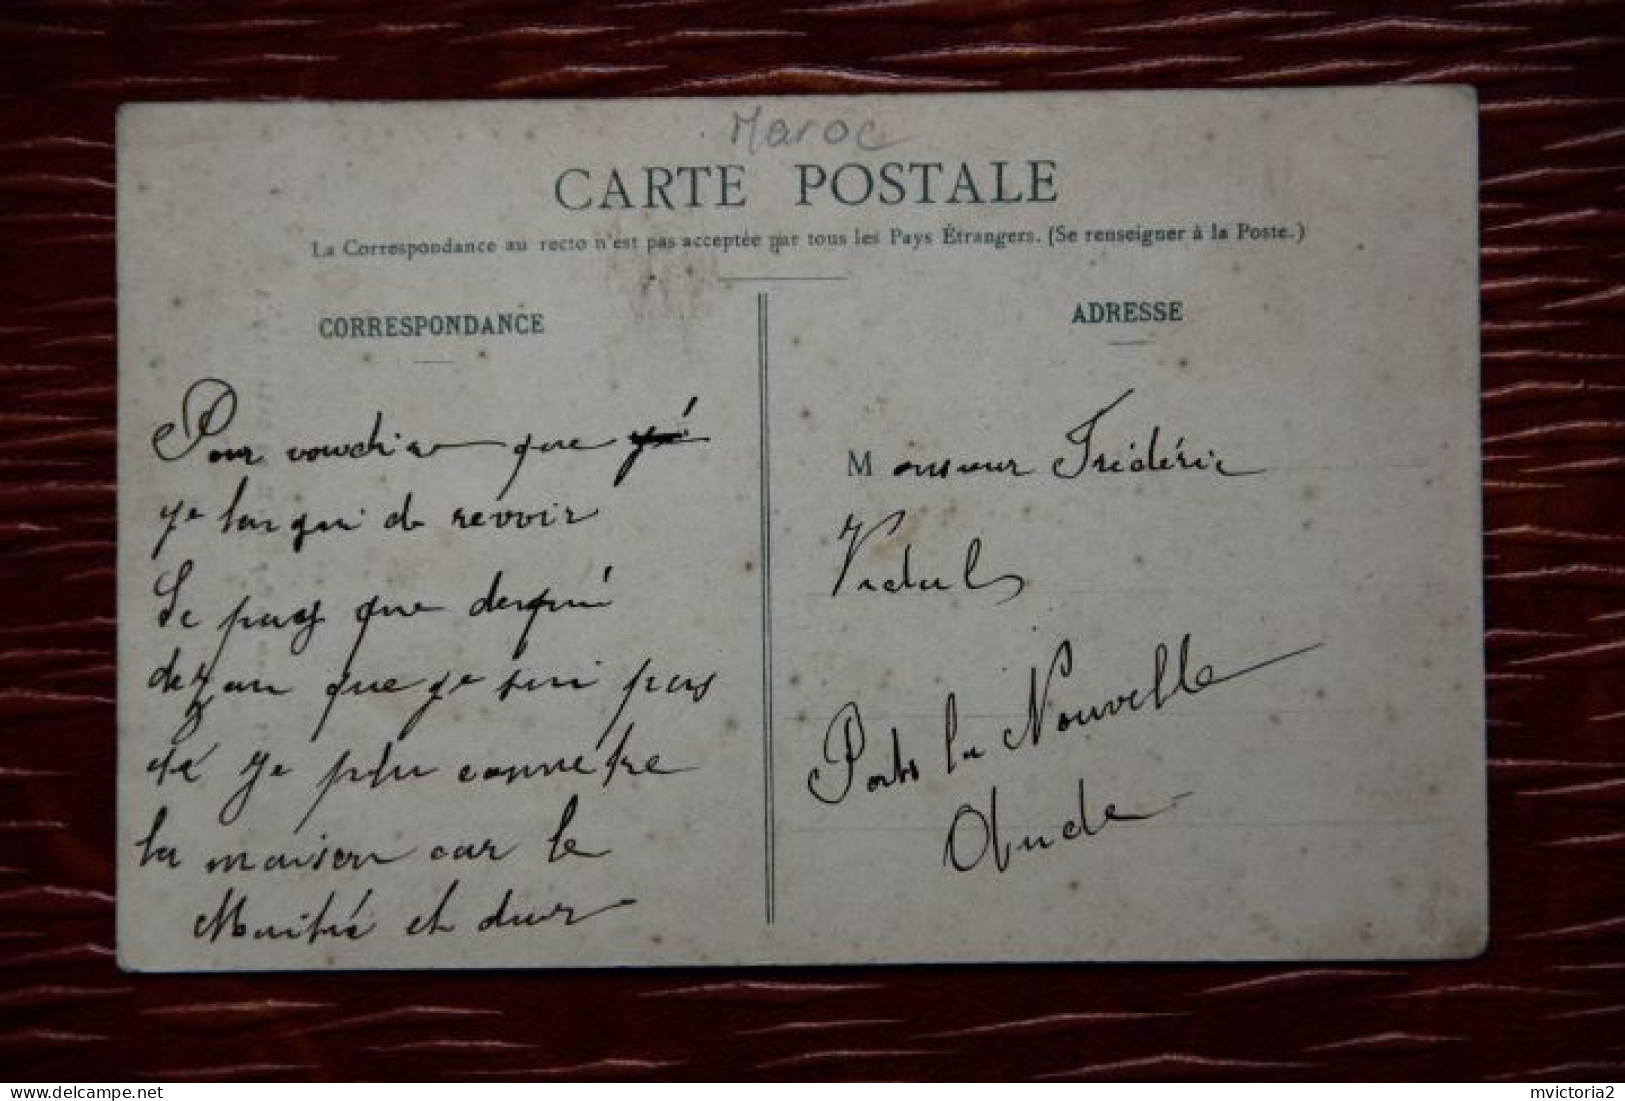 Maroc
CARTE POSTALE
La Correspondance au recto n'est pas acceptée par tous les Pays Étrangers. (Se renseigner à la Poste.)
CORRESPONDANCE
Pour vous dire que
je langui de revoir
Le pays que depui
dezan que je sui pas
dé je plu connetre
la maison car le
Maitre et dur
ADRESSE
Monsieur Frédéric
Vidal
Porte la Nouvelle
Aude
mvictoria2